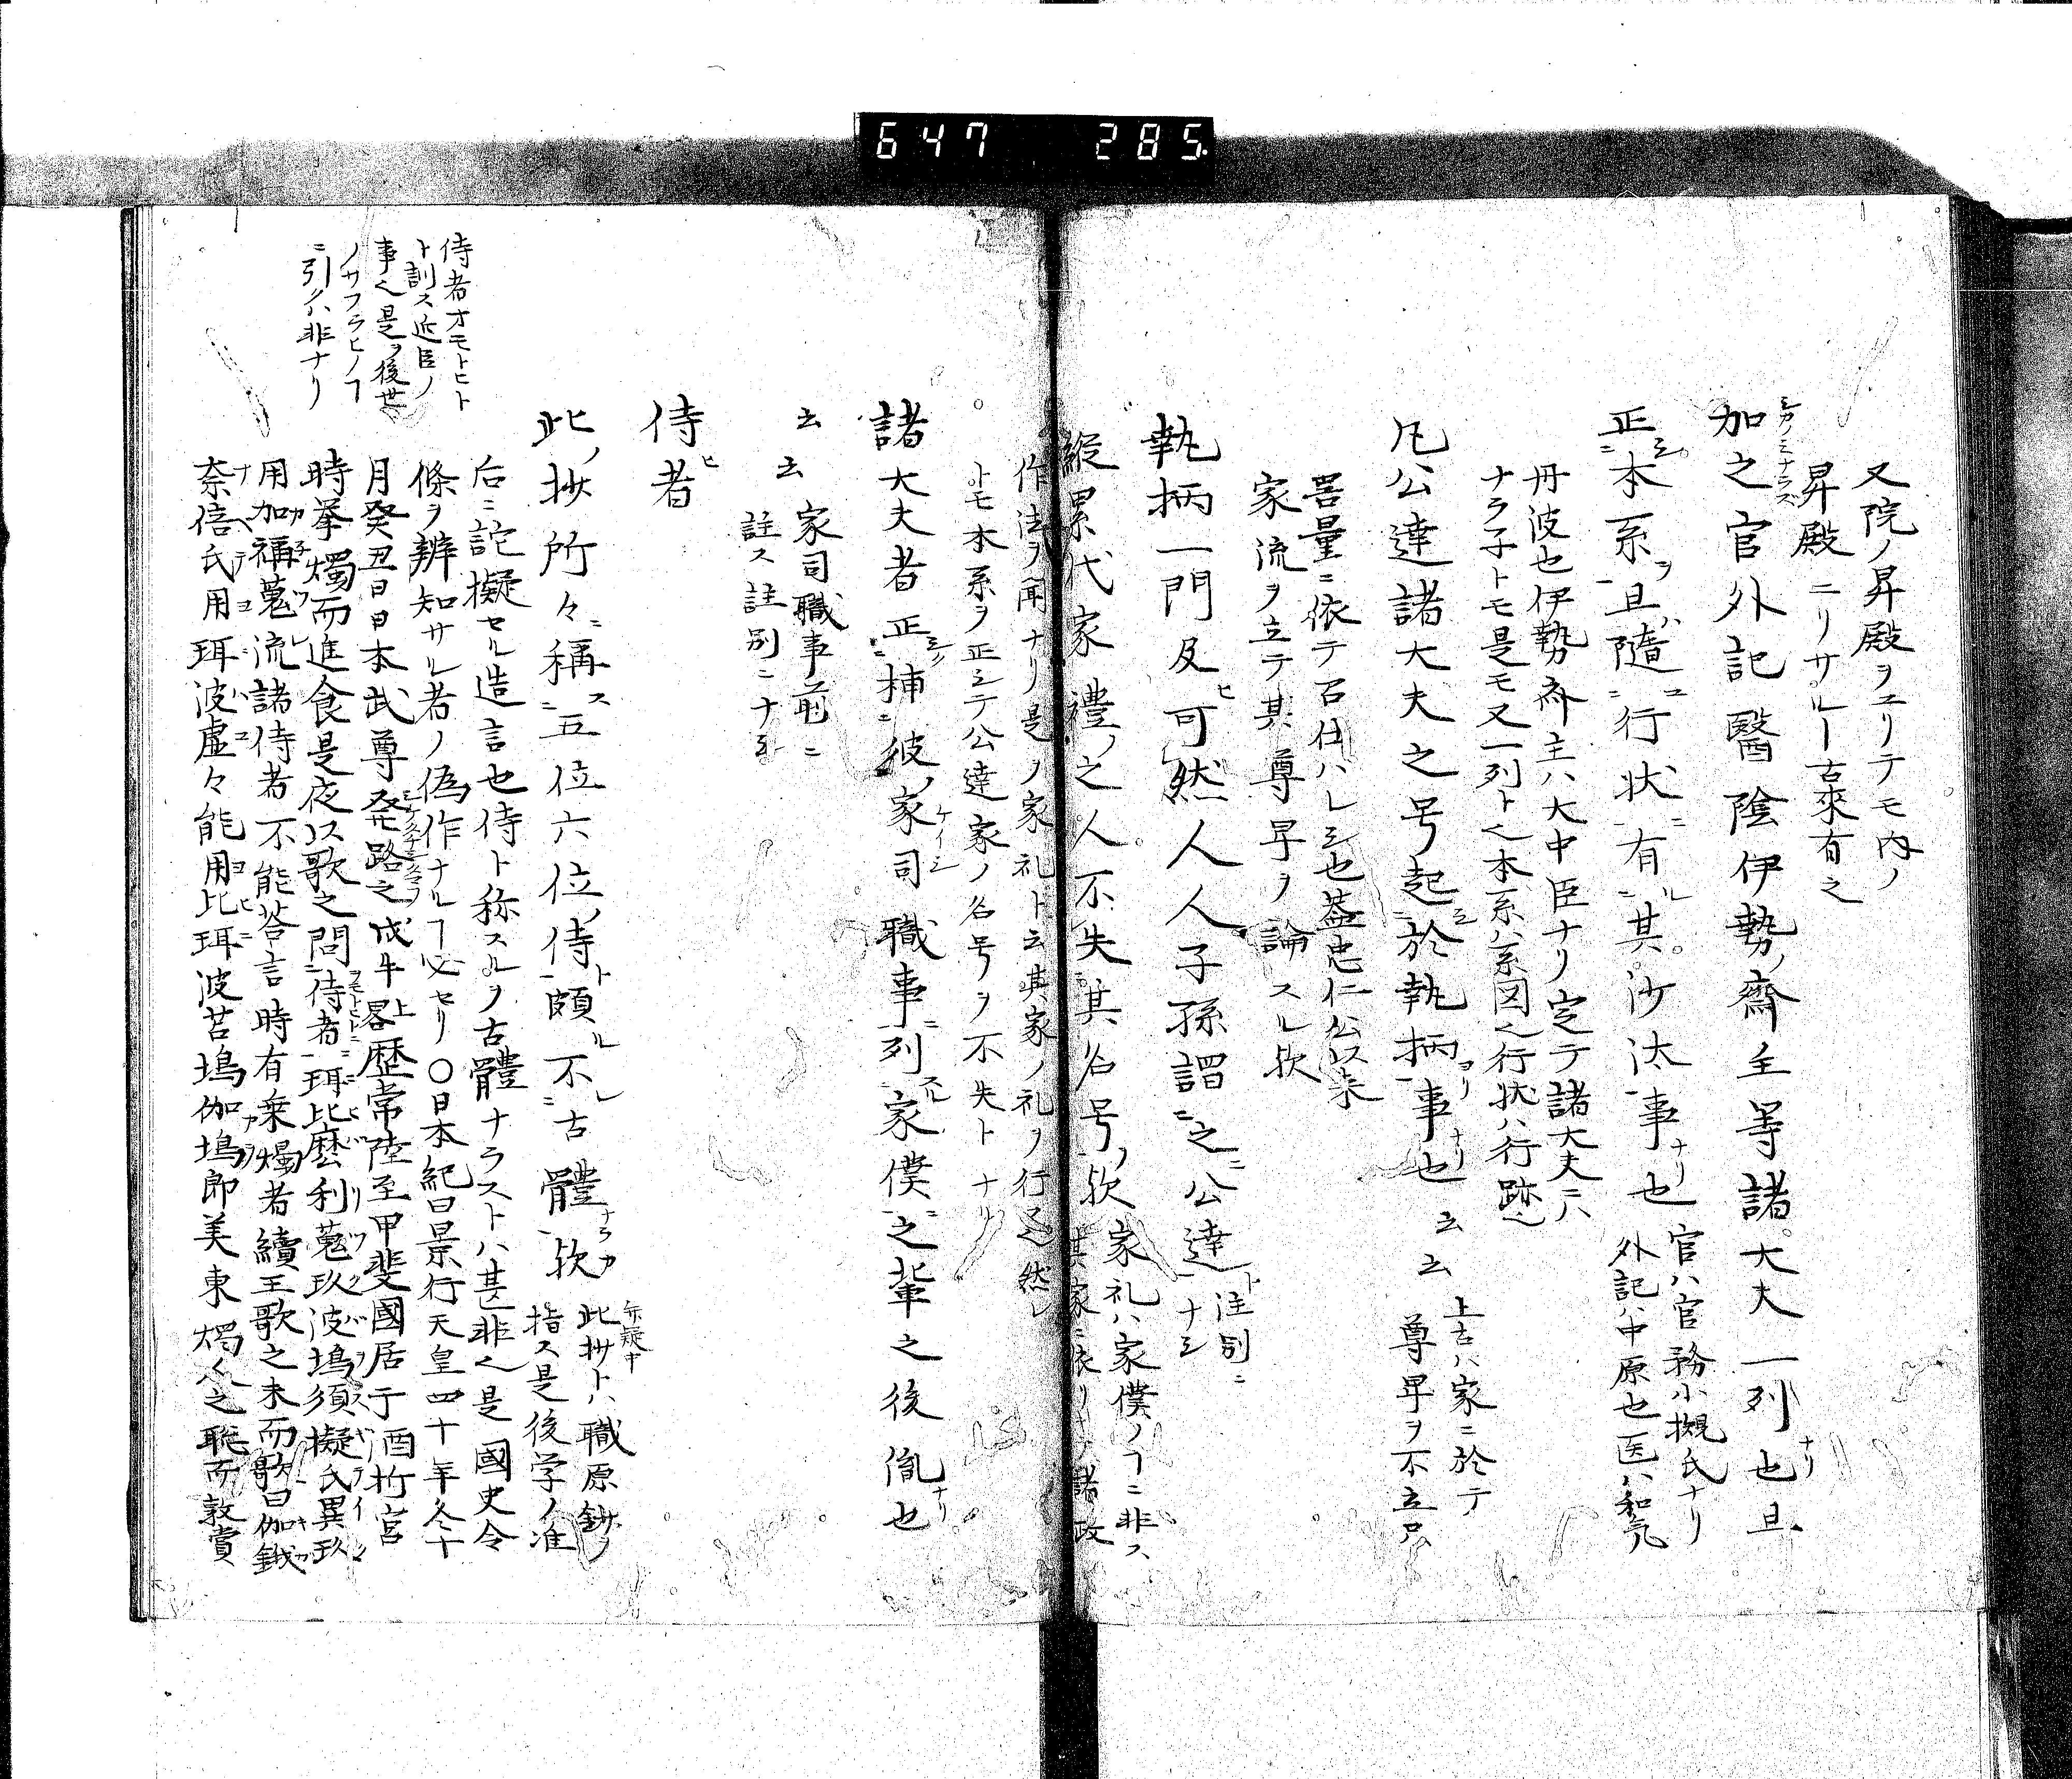 647 285
又院ノ昇殿ヲユリテモ内ノ
昇殿ユリサルヿ古來有之
加之官外記醫陰伊勢ノ齋主等諸大夫一列也且
シカノミナラス
正本系ヲ且ハ隨行状ニ有ル其沙汰事也
官ハ官務小槻氏ナリ
外記ハ中原也医ハ和気
丹波也伊勢斎主ハ大中臣ナリ定テ諸大夫ニハ
ナラ子トモ是モ又一列ト也本系ハ系図也行状ハ行跡也
凡公達諸大夫之号起於執柄事也云云
上古ハ家ニ於テ
尊卑ヲ不立只
器量ニ依テ召仕ハレシ也蓋忠仁公以来
家流ヲ立テ其尊卑ヲ論スル欤
執柄一門及ヒ可然人人子孫謂之公達
ト注別ニ
ナシ
縦累代家禮ノ之人不失其名号ノ欤
家礼ハ家僕ノヿニ非ス
其家ニ依リテ諸政
作法ヲ聞ナリ是ノ家礼ト云其家ノ礼ヲ行之然レ
トモ本系ヲ正シテ公達家ノ名号ヲ不失トナリ
諸大夫者正捕彼ノ家司職事列家僕之輩之後胤也
ケイシ
云云
家司職事前ニ
註ス註別ニナシ
侍者ヒ
此ノ抄所々ニ稱ス五位六位ノ侍ト頗ル不古體欤
弁疑中
此抄トハ職原鈔ヲ
指ス是後学ノ准
后ニ託擬セル造言也侍ト称スルヲ古體ナラストハ甚非也是國史令
條ヲ辨知サル者ノ偽作ナルヿ必セリ〇日本紀曰景行天皇四十年冬十
月癸丑日日本武尊発路之戊午畧上歴常陸至甲斐國居于酒折宮
時挙燭而進食是夜以歌之問侍者珥比麼利菟玖波塢須擬氐異玖
用加禰菟流諸侍者不能荅言時有秉燭者續王歌之末而歌曰伽餓
奈倍氐用珥波虚々能用比珥波苔塢伽塢即美東燭人之聡而敦賞
侍者オモトヒト
ト訓ス近臣ノ
事也是ヲ後世
ノサフラヒノヿ
ニ引ハ非ナリ